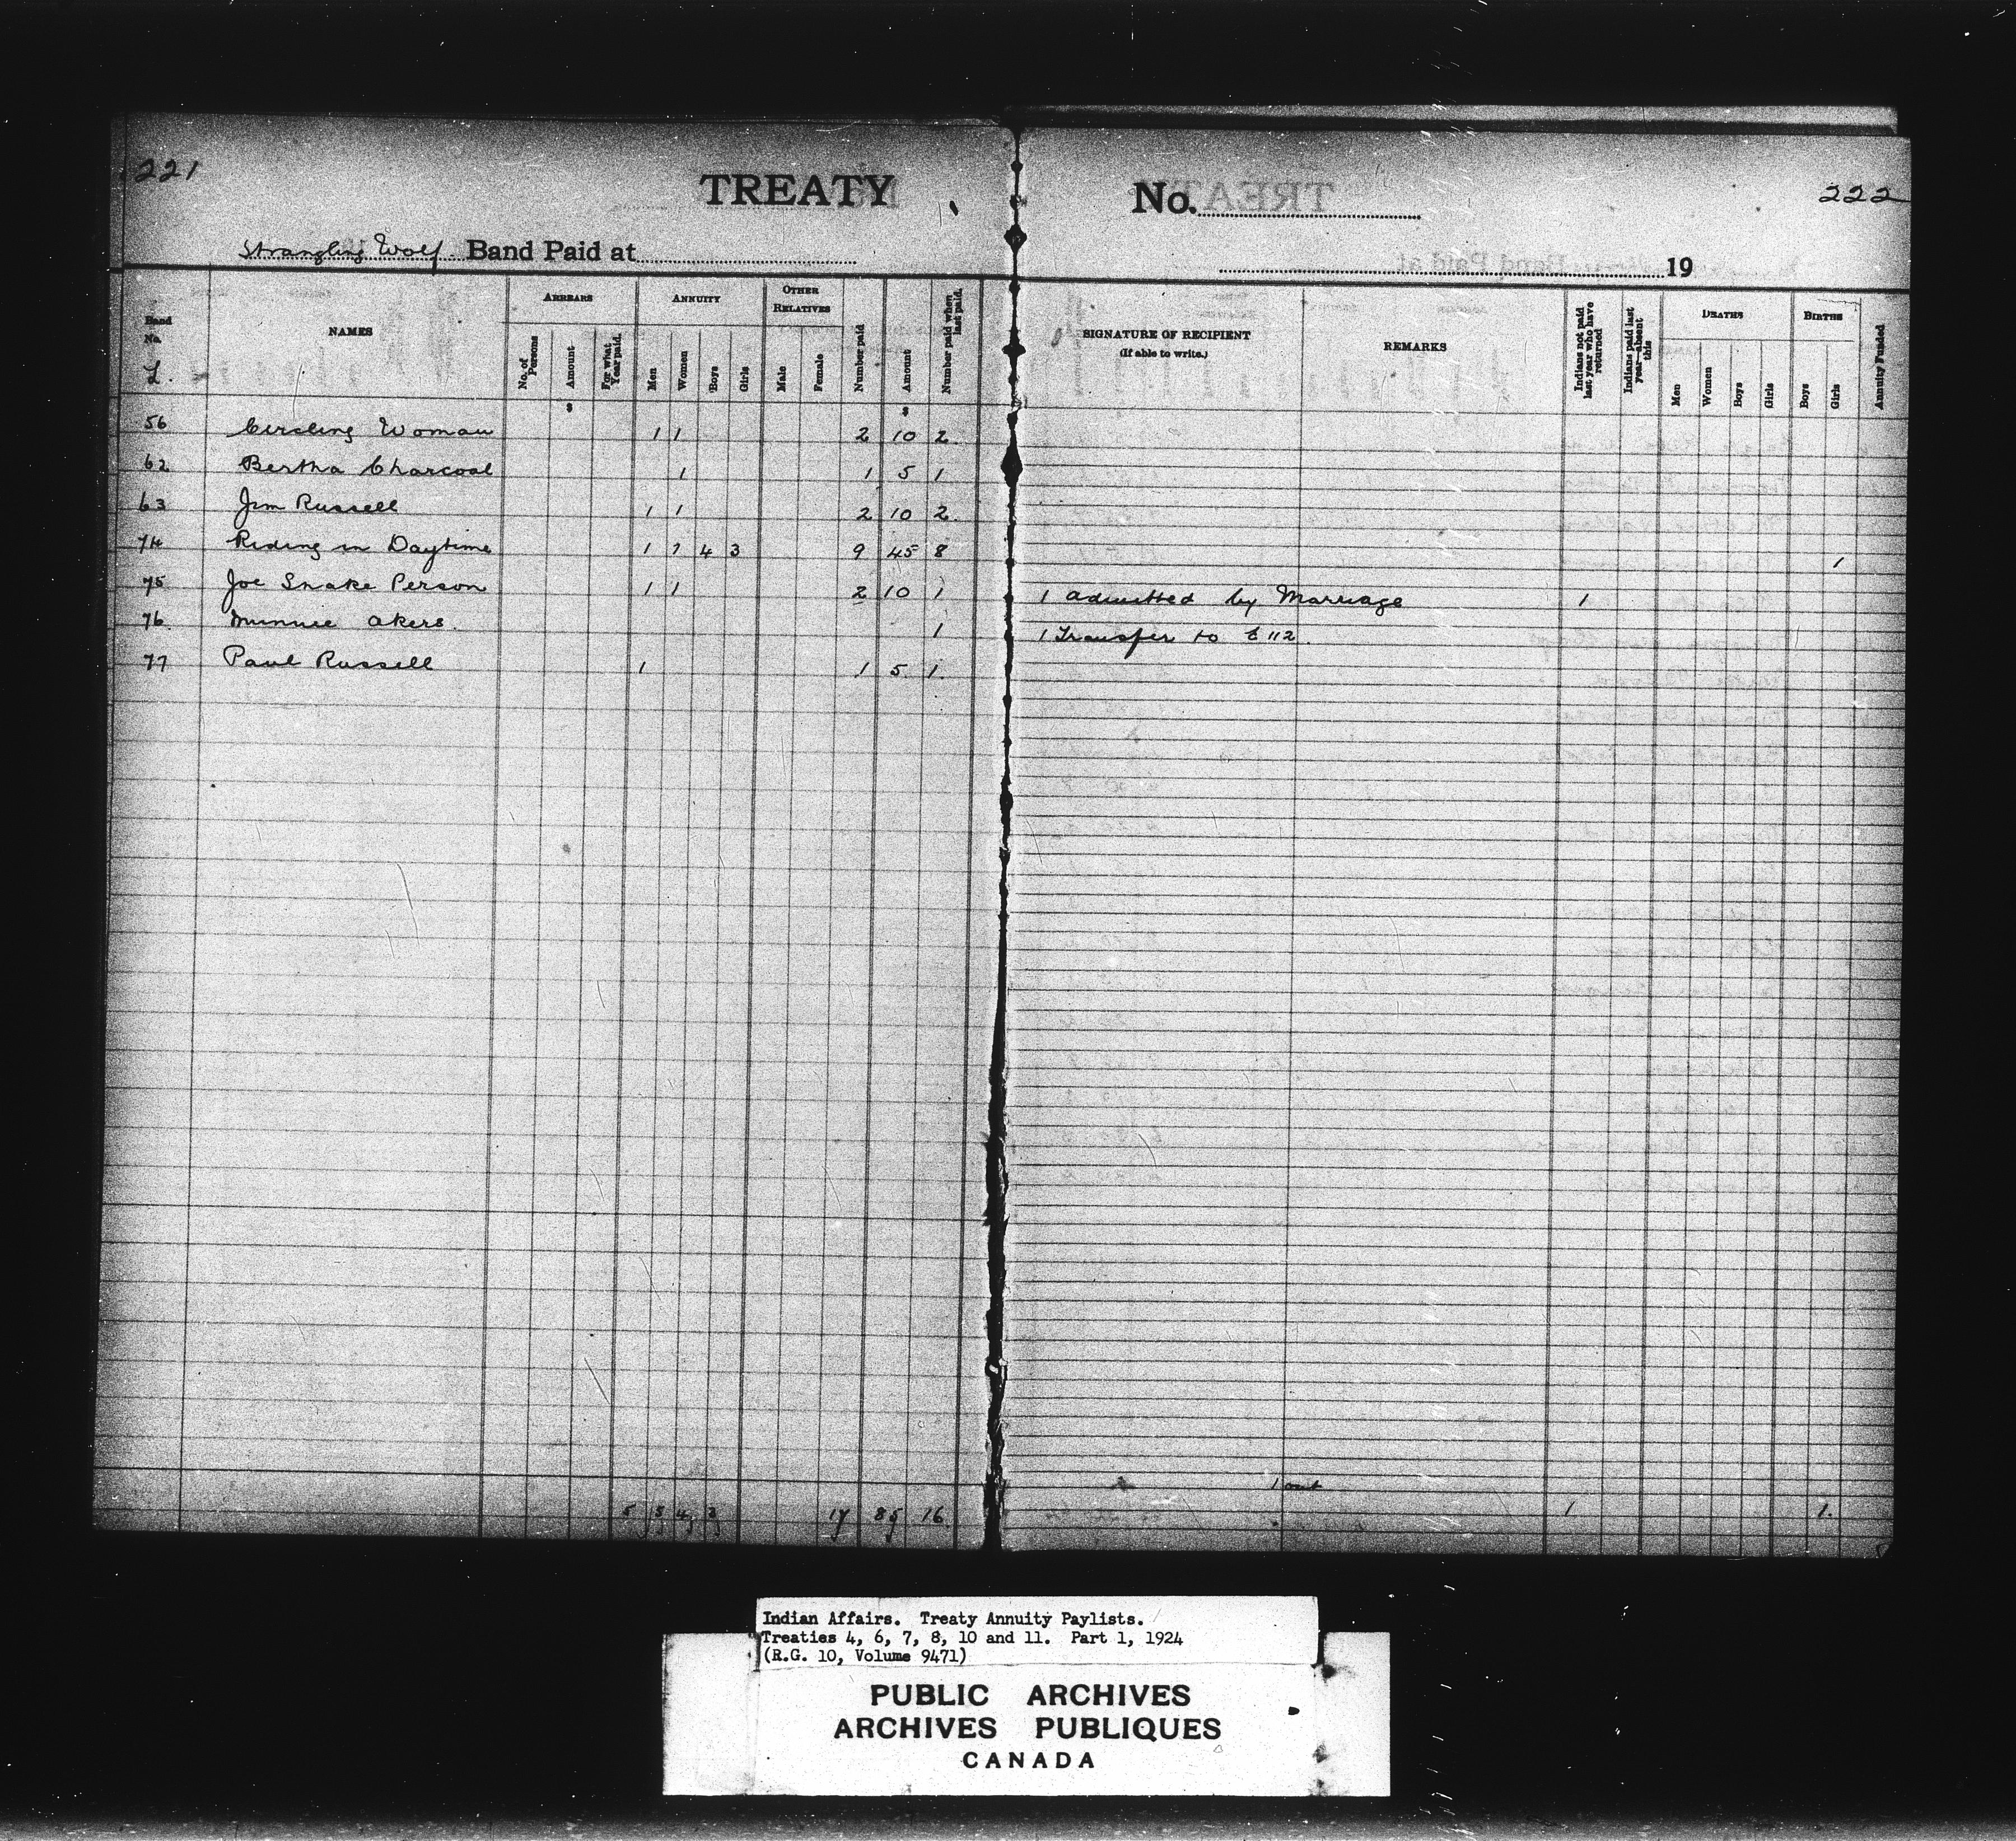 221
TREATY
No.
222
Strangling Wolf Band Paid at
19
Band No. NAMES ARREARS No. of Persons Amount For what Year paid. ANNUITY Men Women Boys Girls OTHER RELATIVES Male Female Number paid Amount Number paid when last paid. SIGNATURE OF RECIPIENT (If able to write.) REMARKS Indians not paid last year who have returned Indians paid last year—absent this DEATHS Men Women Boys Girls BIRTHS Boys Girls Annuity Funded
$ $
56 Circling Woman 1 1 2 10 2
62 Bertha Charcoal 1 1 5 1
63 Jim Russell 1 1 2 10 2
74 Riding in Daytime 1 1 4 3 9 45 8 1
75 Joe Snake Person 1 1 2 10 1 1 admitted by Marriage 1
76 Minnie Akers. 1 1 Transfer to 112
77 Paul Russell 1 1 5 1
1 out
5 5 4 3 17 85 16 1 1
Indian Affairs. Treaty Annuity Paylists.
Treaties 4, 6, 7, 8, 10 and 11. Part 1, 1924
(R.G. 10, Volume 9471)
PUBLIC ARCHIVES
ARCHIVES PUBLIQUES
CANADA